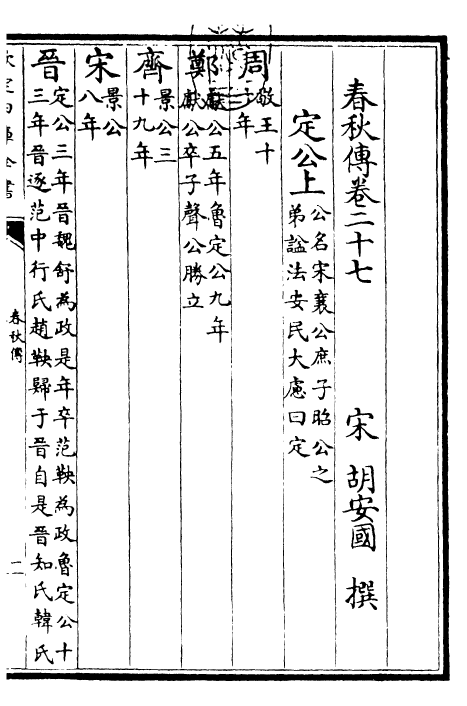 春秋傳卷二十七
宋 胡安國 撰
定公上 公名宋襄公庶子昭公之
弟諡法安民大慮曰定
周 敬王十
一年
鄭 獻公五年魯定公九年
獻公卒子聲公勝立
齊 景公三
十九年
宋 景公
八年
晉 定公三年晉魏舒為政是年卒范鞅為政魯定公十
三年晉逐范中行氏趙鞅歸于晉自是晉知氏韓氏
春秋傳